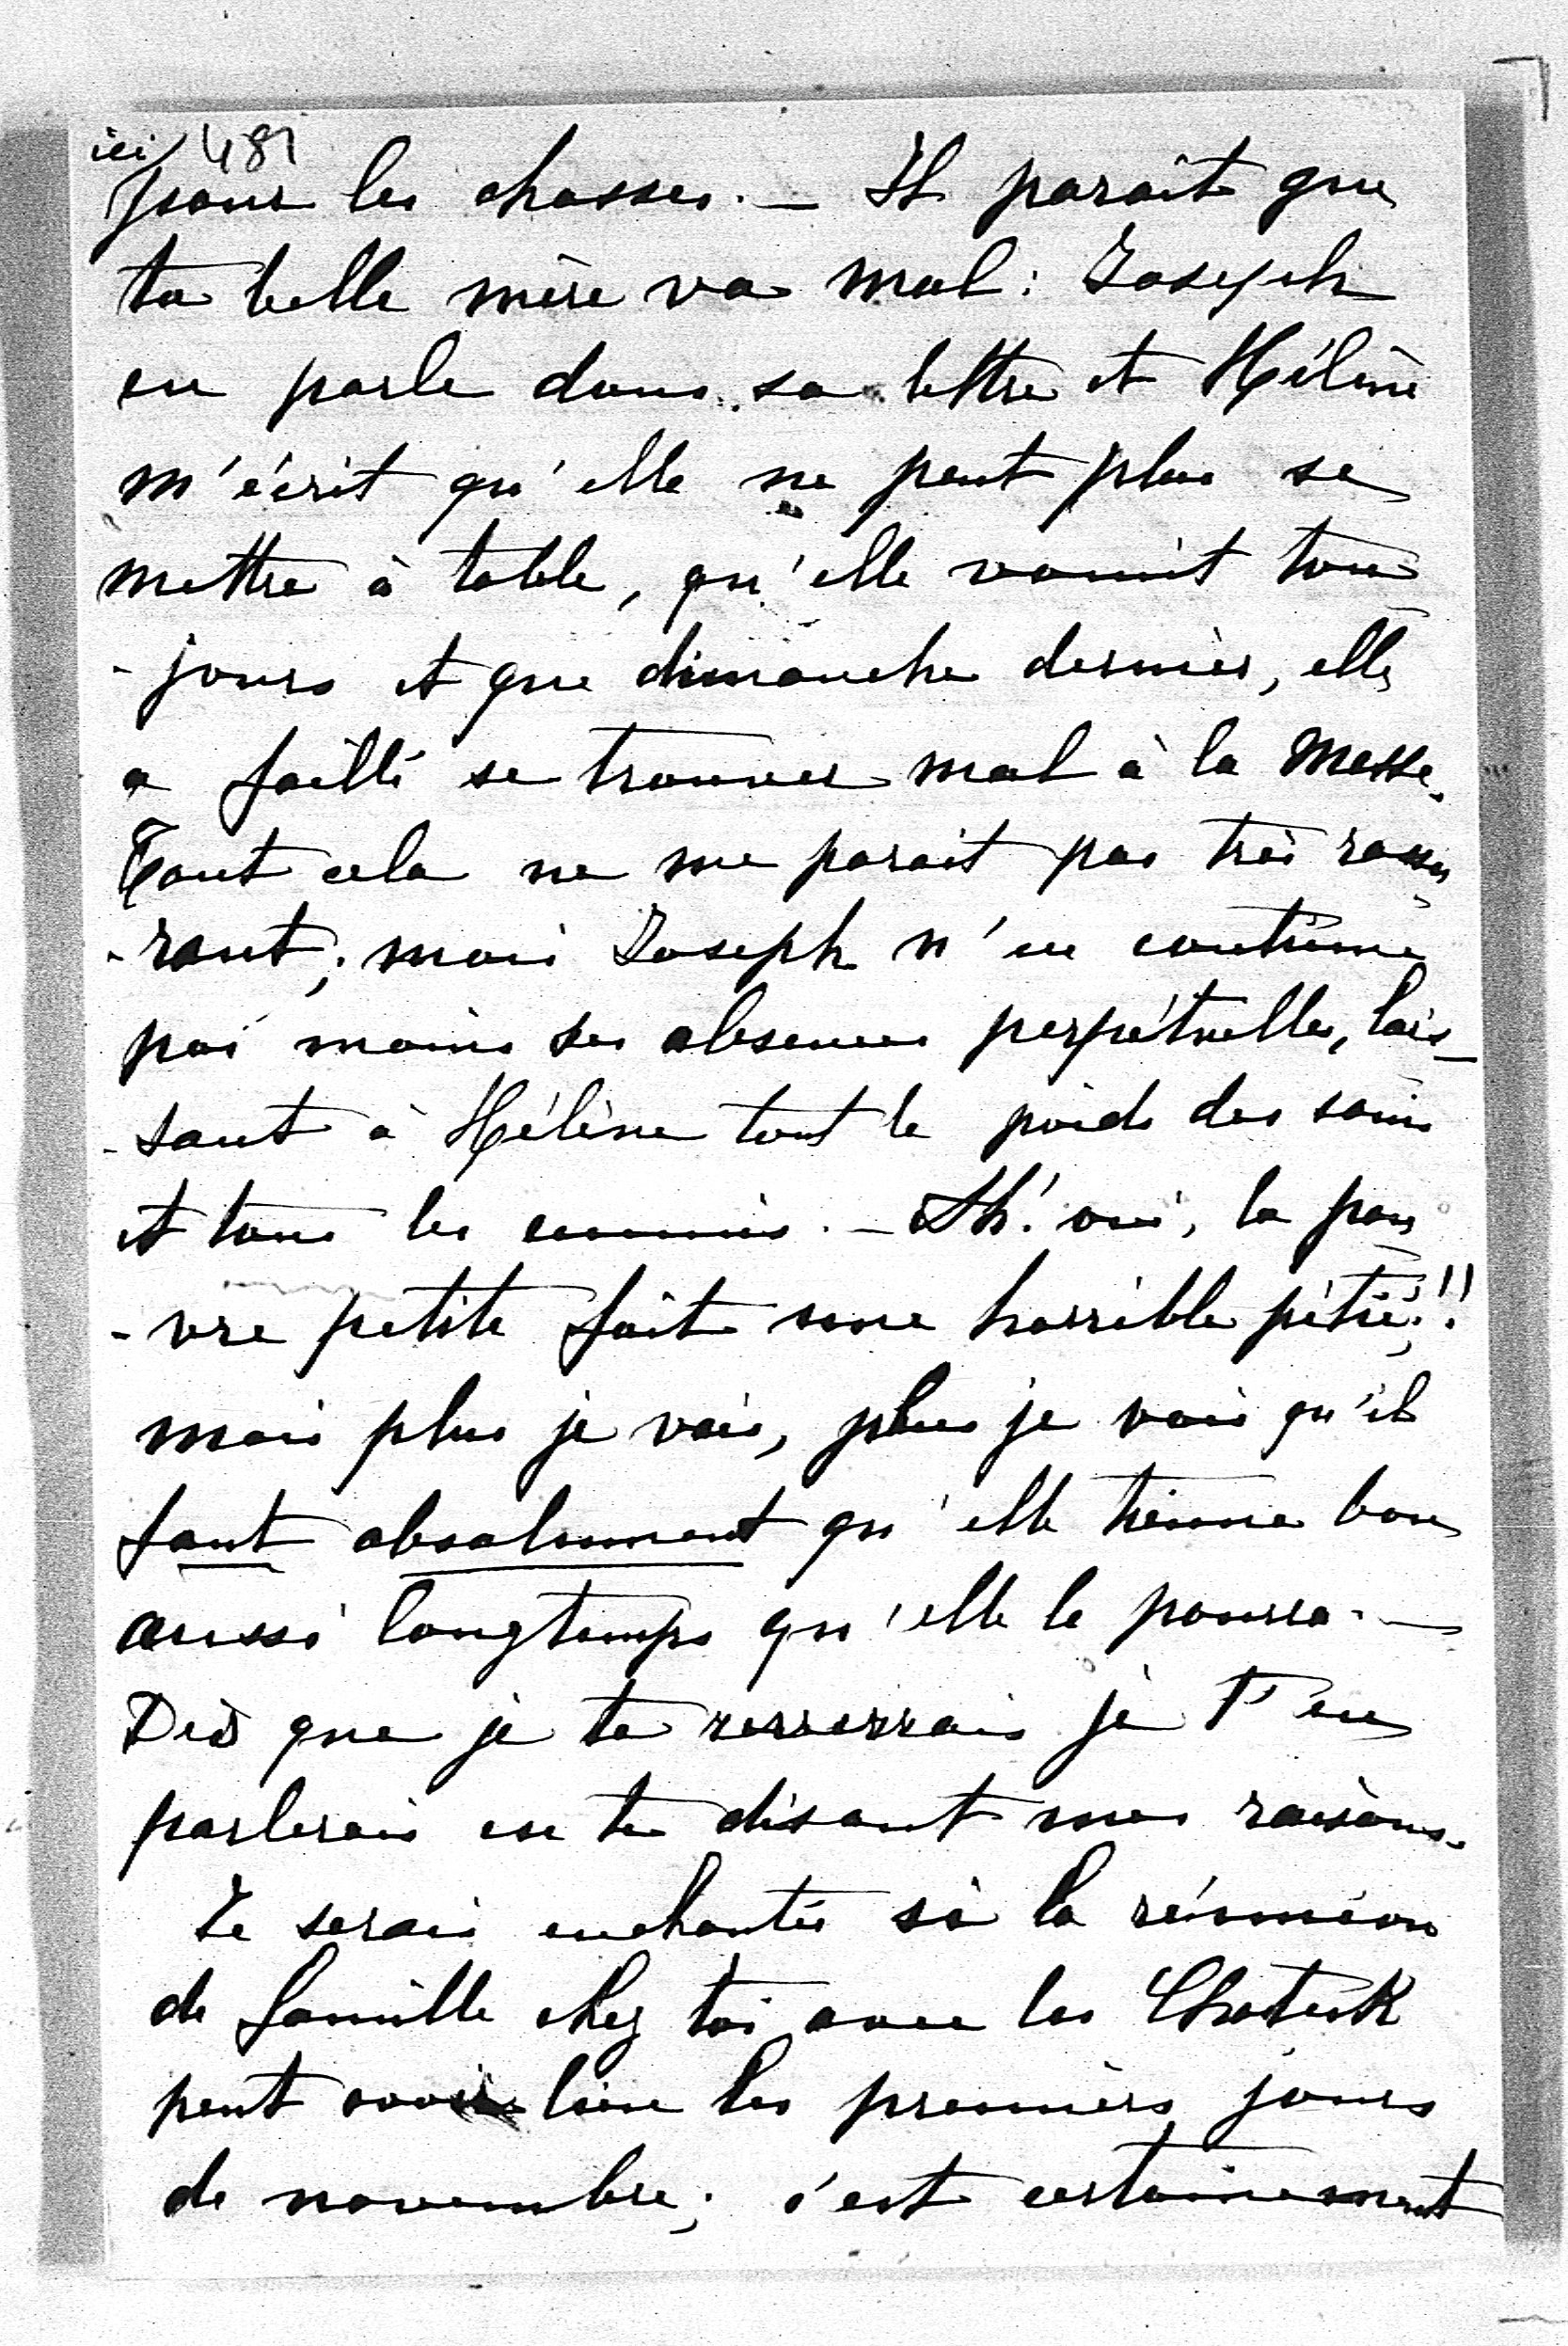 ici 481
pour les chasses. — Il parait que
ta belle mère va mal : Joseph
en parle dans sa lettre et Hélène
m'écrit qu'elle ne peut plus se
mettre à table, qu'elle vomit tou
-jours et que dimanche dernier, elle
a failli se trouver mal à la Messe.
Tout cela ne me parait pas très rassu
-rant ; mais Joseph n'en continue
pas moins ses absences perpétuelles, lais-
-sant à Hélène tout le poids des soins
et tous les ennuis. — Ah ! oui, la pau
-vre petite fait une horrible pitié !!
mais plus je vais, plus je vois qu'il
faut absolument qu'elle tienne bon
aussi longtemps qu'elle le pourra. —
Dès que je te reverrais je t'en
parlerais en te disant mes raisons.
Je serais enchantée si la réunion
de famille chez toi avec les
peut avoir lieu les premiers jours
de novembre ; c'est certainement